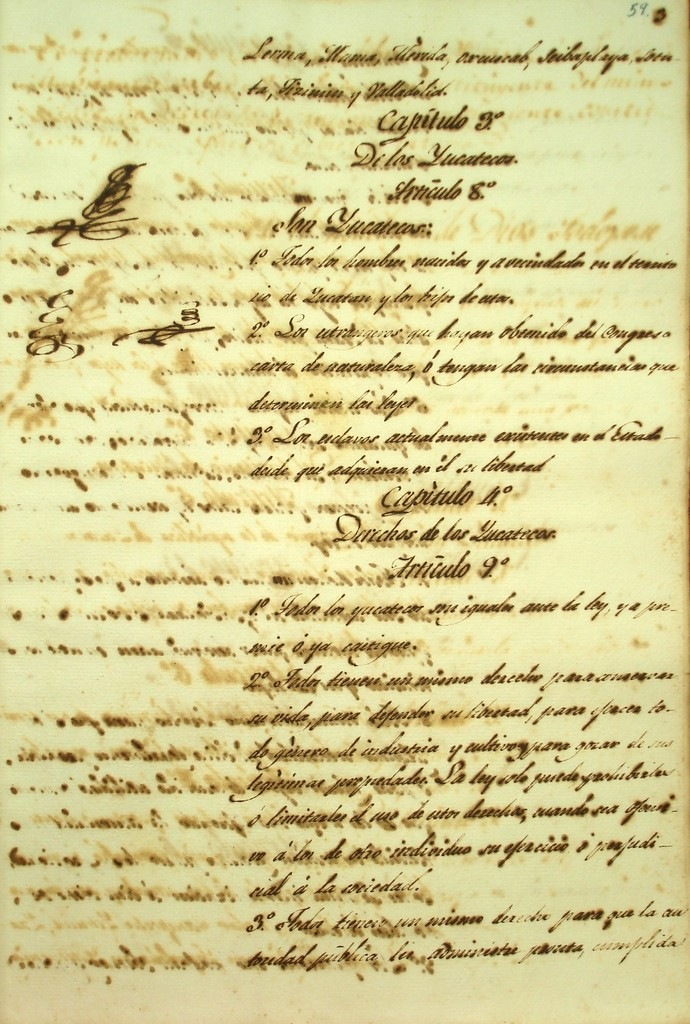 59. 3
Lerma, Mama, Mérida, oxcuscab, Seibaplaya, Socu-
ta, Tizimin y Valladolid.
Capítulo 3.º
De los Yucatecos.
Artículo 8.º
Son Yucatecos:
1.º Todos los hombres nacidos y avecindados en el territo
rio de Yucatan y los hijos de estos.
2.º Los estrangeros que hayan obtenido del Congreso
carta de naturaleza, ó tengan las circunstancias que
determinen las leyes.
3.º Los esclavos actualmente existentes en el Estado
desde que adquieran en él su libertad
Capìtulo 4.º
Derechos de los Yucatecos.
Artículo 9.º
1.º Todos los yucatecos son iguales ante la ley, ya pre-
mie ó ya castigue.
2.º Todos tienen un mismo derecho para conservar
su vida, para defender su libertad, para ejercer to-
do gènero de industria y cultivo, y para gozar de sus
legìtimas propiedades. La ley solo puede prohibirles
ó limitarles el uso de estos derechos, cuando sea ofensi-
vo á los de otro individuo su ejercicio ó perjudi-
cial á la sociedad.
3.º Todos tienen un mismo derecho para que la au
toridad pública les administre pronta, cumplida